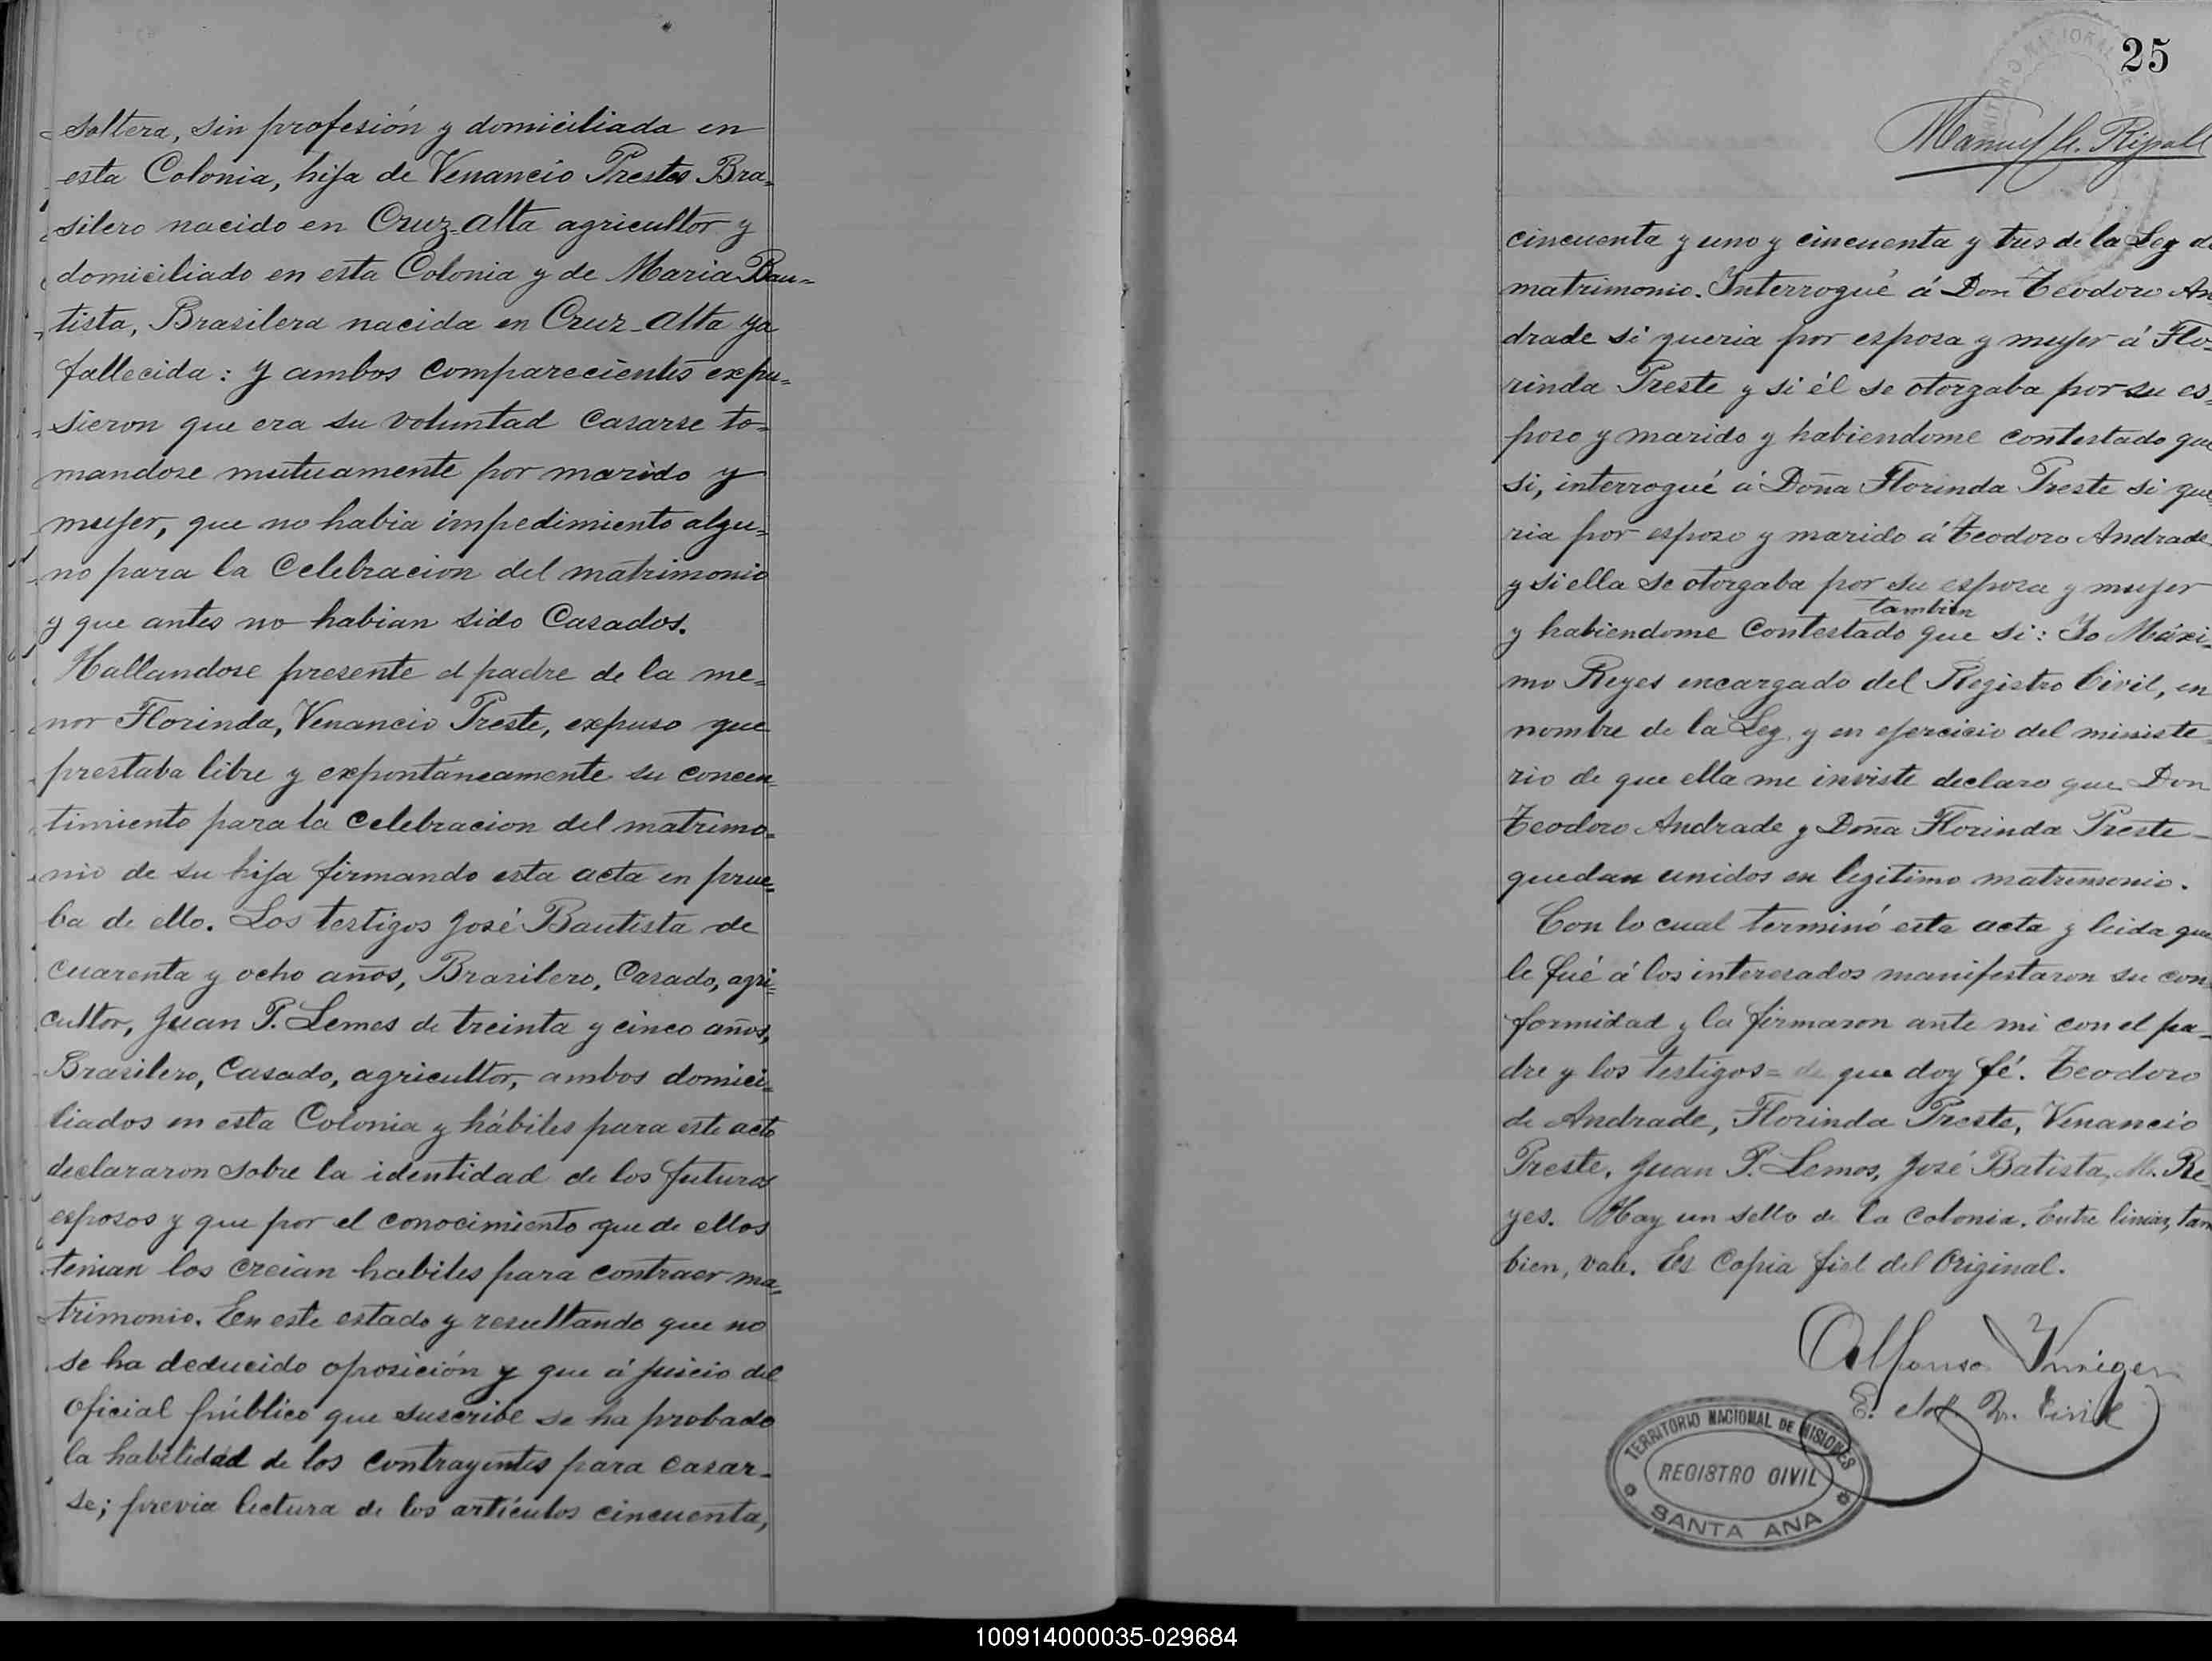 soltera, sin profesión y domiciliada en
esta Colonia, hija de Venancio Prestes Bra=
silero nacido en Cruz-alta agricultor y
domiciliado en esta Colonia y de Maria Bau=
tista, Brasilera nacida en Cruz-alta ya
fallecida: y ambos comparecientes expu=
sieron que era su voluntad casarse to=
mandose mutuamente por marido y
mujer, que no habia impedimento algu=
no para la celebracion del matrimonio
y que antes no habian sido Casados.
Hallandose presente el padre de la me=
nor Florinda, Venancio Preste, expuso que
prestaba libre y expontáneamente su concen=
timiento para la celebracion del matrimo=
nio de su hija firmando esta acta en prue=
ba de ello. Los testigos José Bautista de
cuarenta y ocho años, Brasilero, Casado, agri=
cultor, Juan P. Lemes de treinta y cinco años,
Brasilero, Casado, agricultor, ambos domici=
liados en esta Colonia y hábiles para este acto
declararon sobre la identidad de los futuros
esposos y que por el conocimiento que de ellos
tenian los creian habiles para contraer ma=
trimonio. En este estado y resultando que no
se ha deducido oposición y que á juicio del
oficial público que suscribe se ha probado
la habilidad de los contrayentes para casar-
se; previa lectura de los artículos cincuenta,
25
Manuel Ripoll
cincuenta y uno y cincuenta y tres de la Ley de
matrimonio. Interrogué á Don Teodoro An
drade si queria por esposa y mujer á Flo=
rinda Preste y si él se otorgaba por su es=
poso y marido y habiendome contestado que
si, interrogué á Doña Florinda Preste si que
ria por esposo y marido á Teodoro Andrade
y si ella se otorgaba por su esposa y mujer
tambien
y habiendome contestado que si: Yo Máxi=
mo Reyes encargado del Registro Civil, en
nombre de la Ley y en ejercicio del ministe=
rio de que ella me inviste declaro que Don
Teodoro Andrade y Doña Florinda Preste-
quedan unidos en legitimo matrimonio.
Con lo cual terminó esta acta y leida que
le fué á los interesados manifestaron su con
formidad y la firmaron ante mi con el pa-
dre y los testigos= de que doy fé. Teodoro
de Andrade, Florinda Preste, Venancio
Preste, Juan P. Lemos, José Batista, M. Re
yes. Hay un sello de la Colonia. Entre linias, tam
bien, vale. Es Copia fiel del Original.
Alfonso
E. del R. Civil
TERRITORIO NACIONAL DE MISIONES
REGISTRO CIVIL
SANTA ANA
100914000035-029684